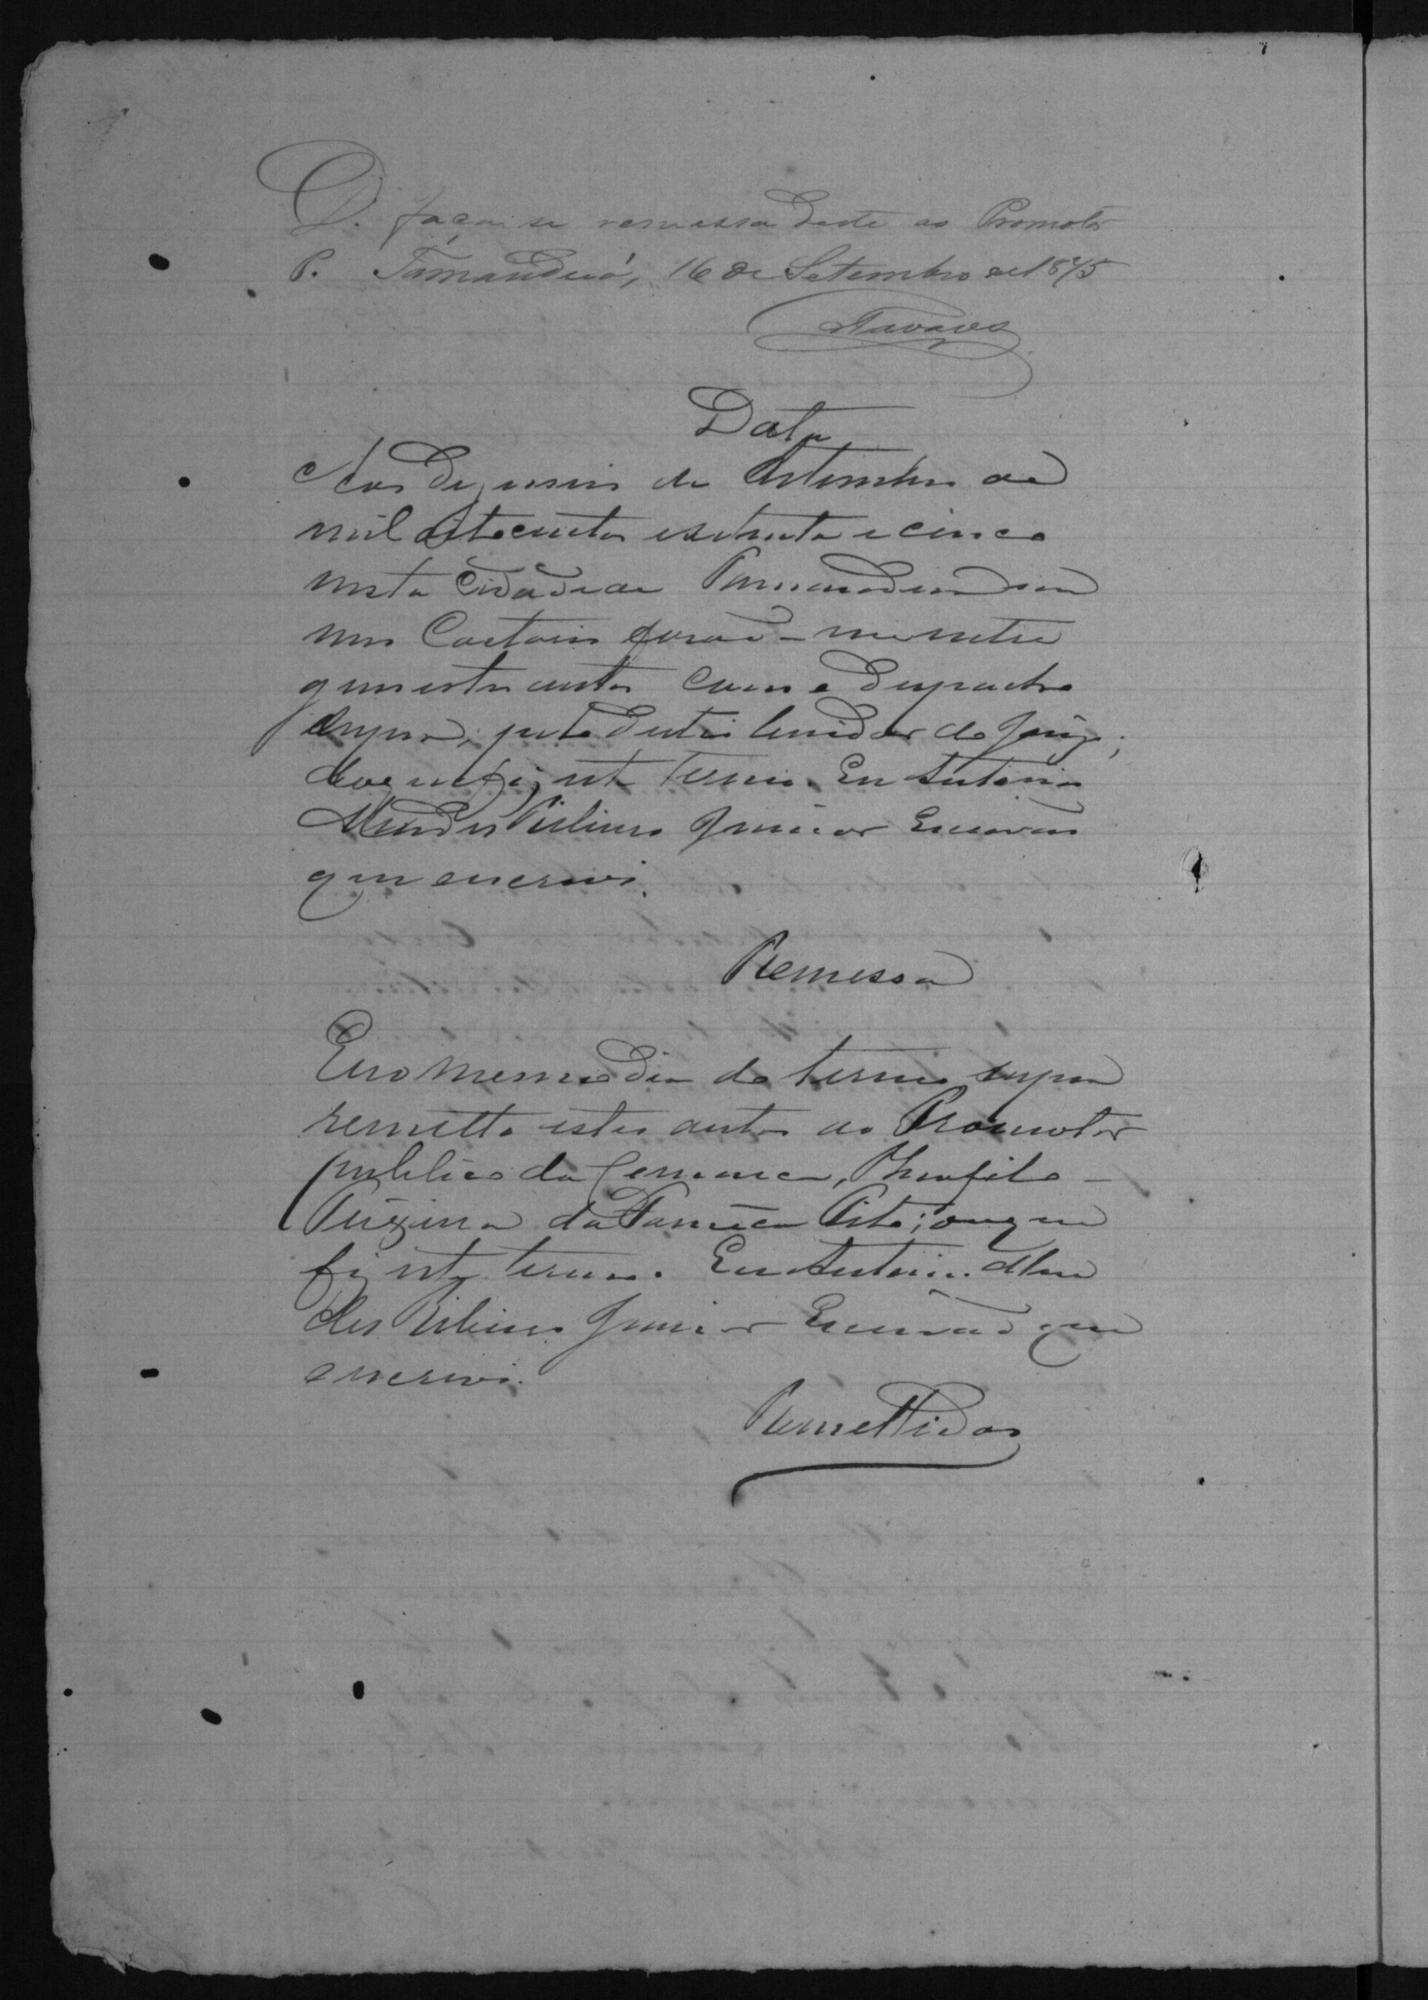 D. faça-se remessa deste ao Promotor
P. Tamanduá, 16 de Setembro de 1875
Tavares
Data
Aos dezeseis de Setembro de
mil oitocentos e setenta e cinco
nesta Cidade de Tamanduá em
meu Cartorio forão-me entre
gues estes autos com o despacho
supra, pelo Juiz;
do que fiz este termo. Eu Antonio
Mendes Ribeiro Junior Escrivão
que escrevi.
Remessa
E no mesmo dia do termo supra
remetto estes autos ao Promotor
publico da Comarca, Theofilo
Pereira da Fonseca; do que
fiz este termo. Eu Antonio Men
des Ribeiro Junior Escrivão que
escrevi.
Remettidos